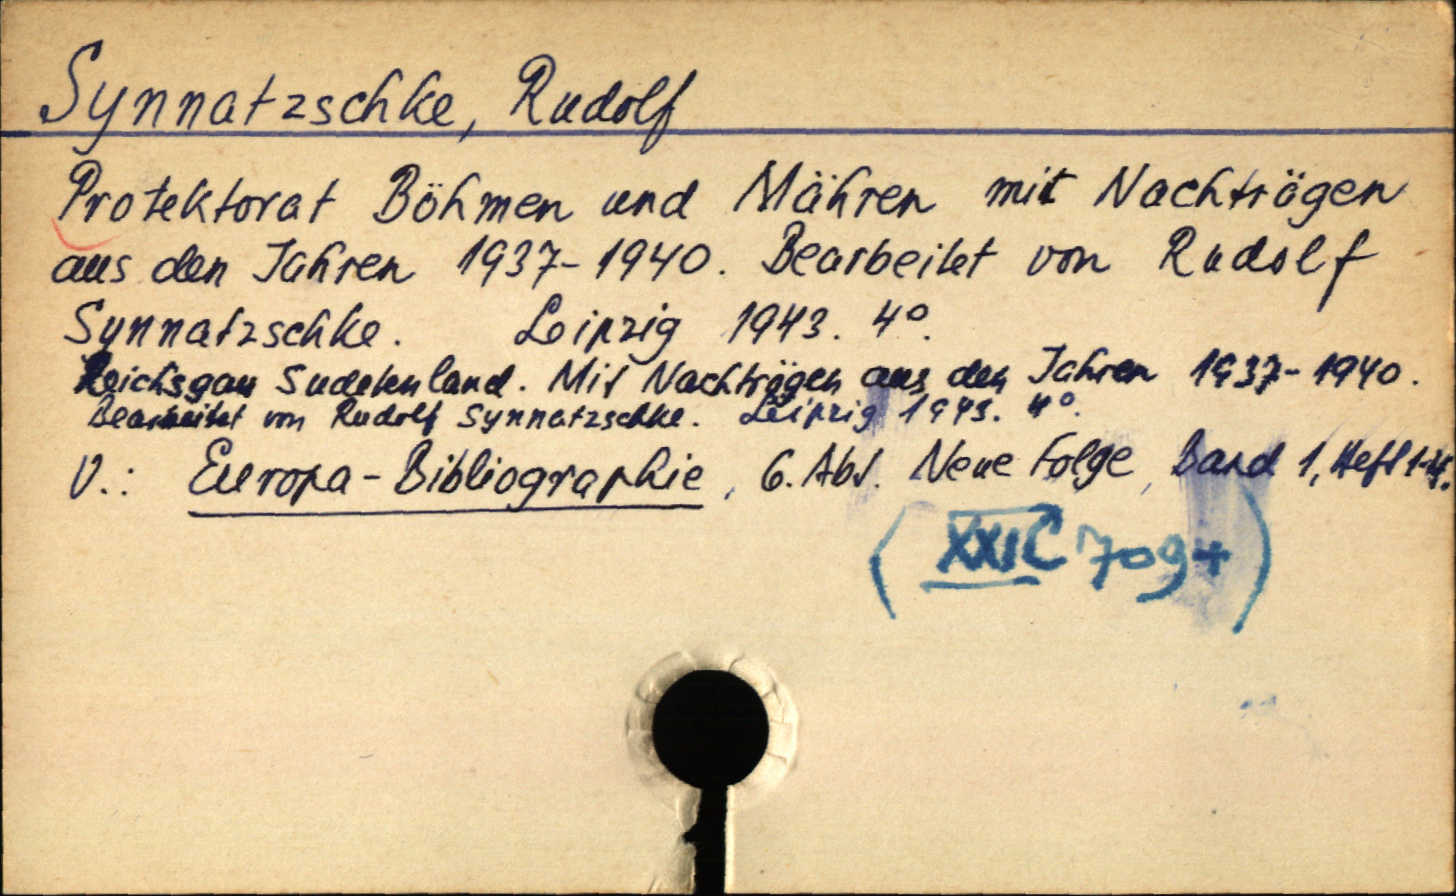 Synnatzschke, Rudolf
Protektorat Böhmen und Mähren mit Nachträgen
aus den Jahren 1937-1940. Bearbeitet von Rudolf
Synnatzschke. Leipzig 1943. 4°.
Reichsgau Sudetenland. Mit Nachträgen aus den Jahren 1937-1940.
Bearbeitet von Rudolf Synnatzschke. Leipzig 1943. 4°.
V.: Europa-Bibliographie, 6. Abt. Neue Folge, Band 1, Heft 1-4.
(XXIC 709+)